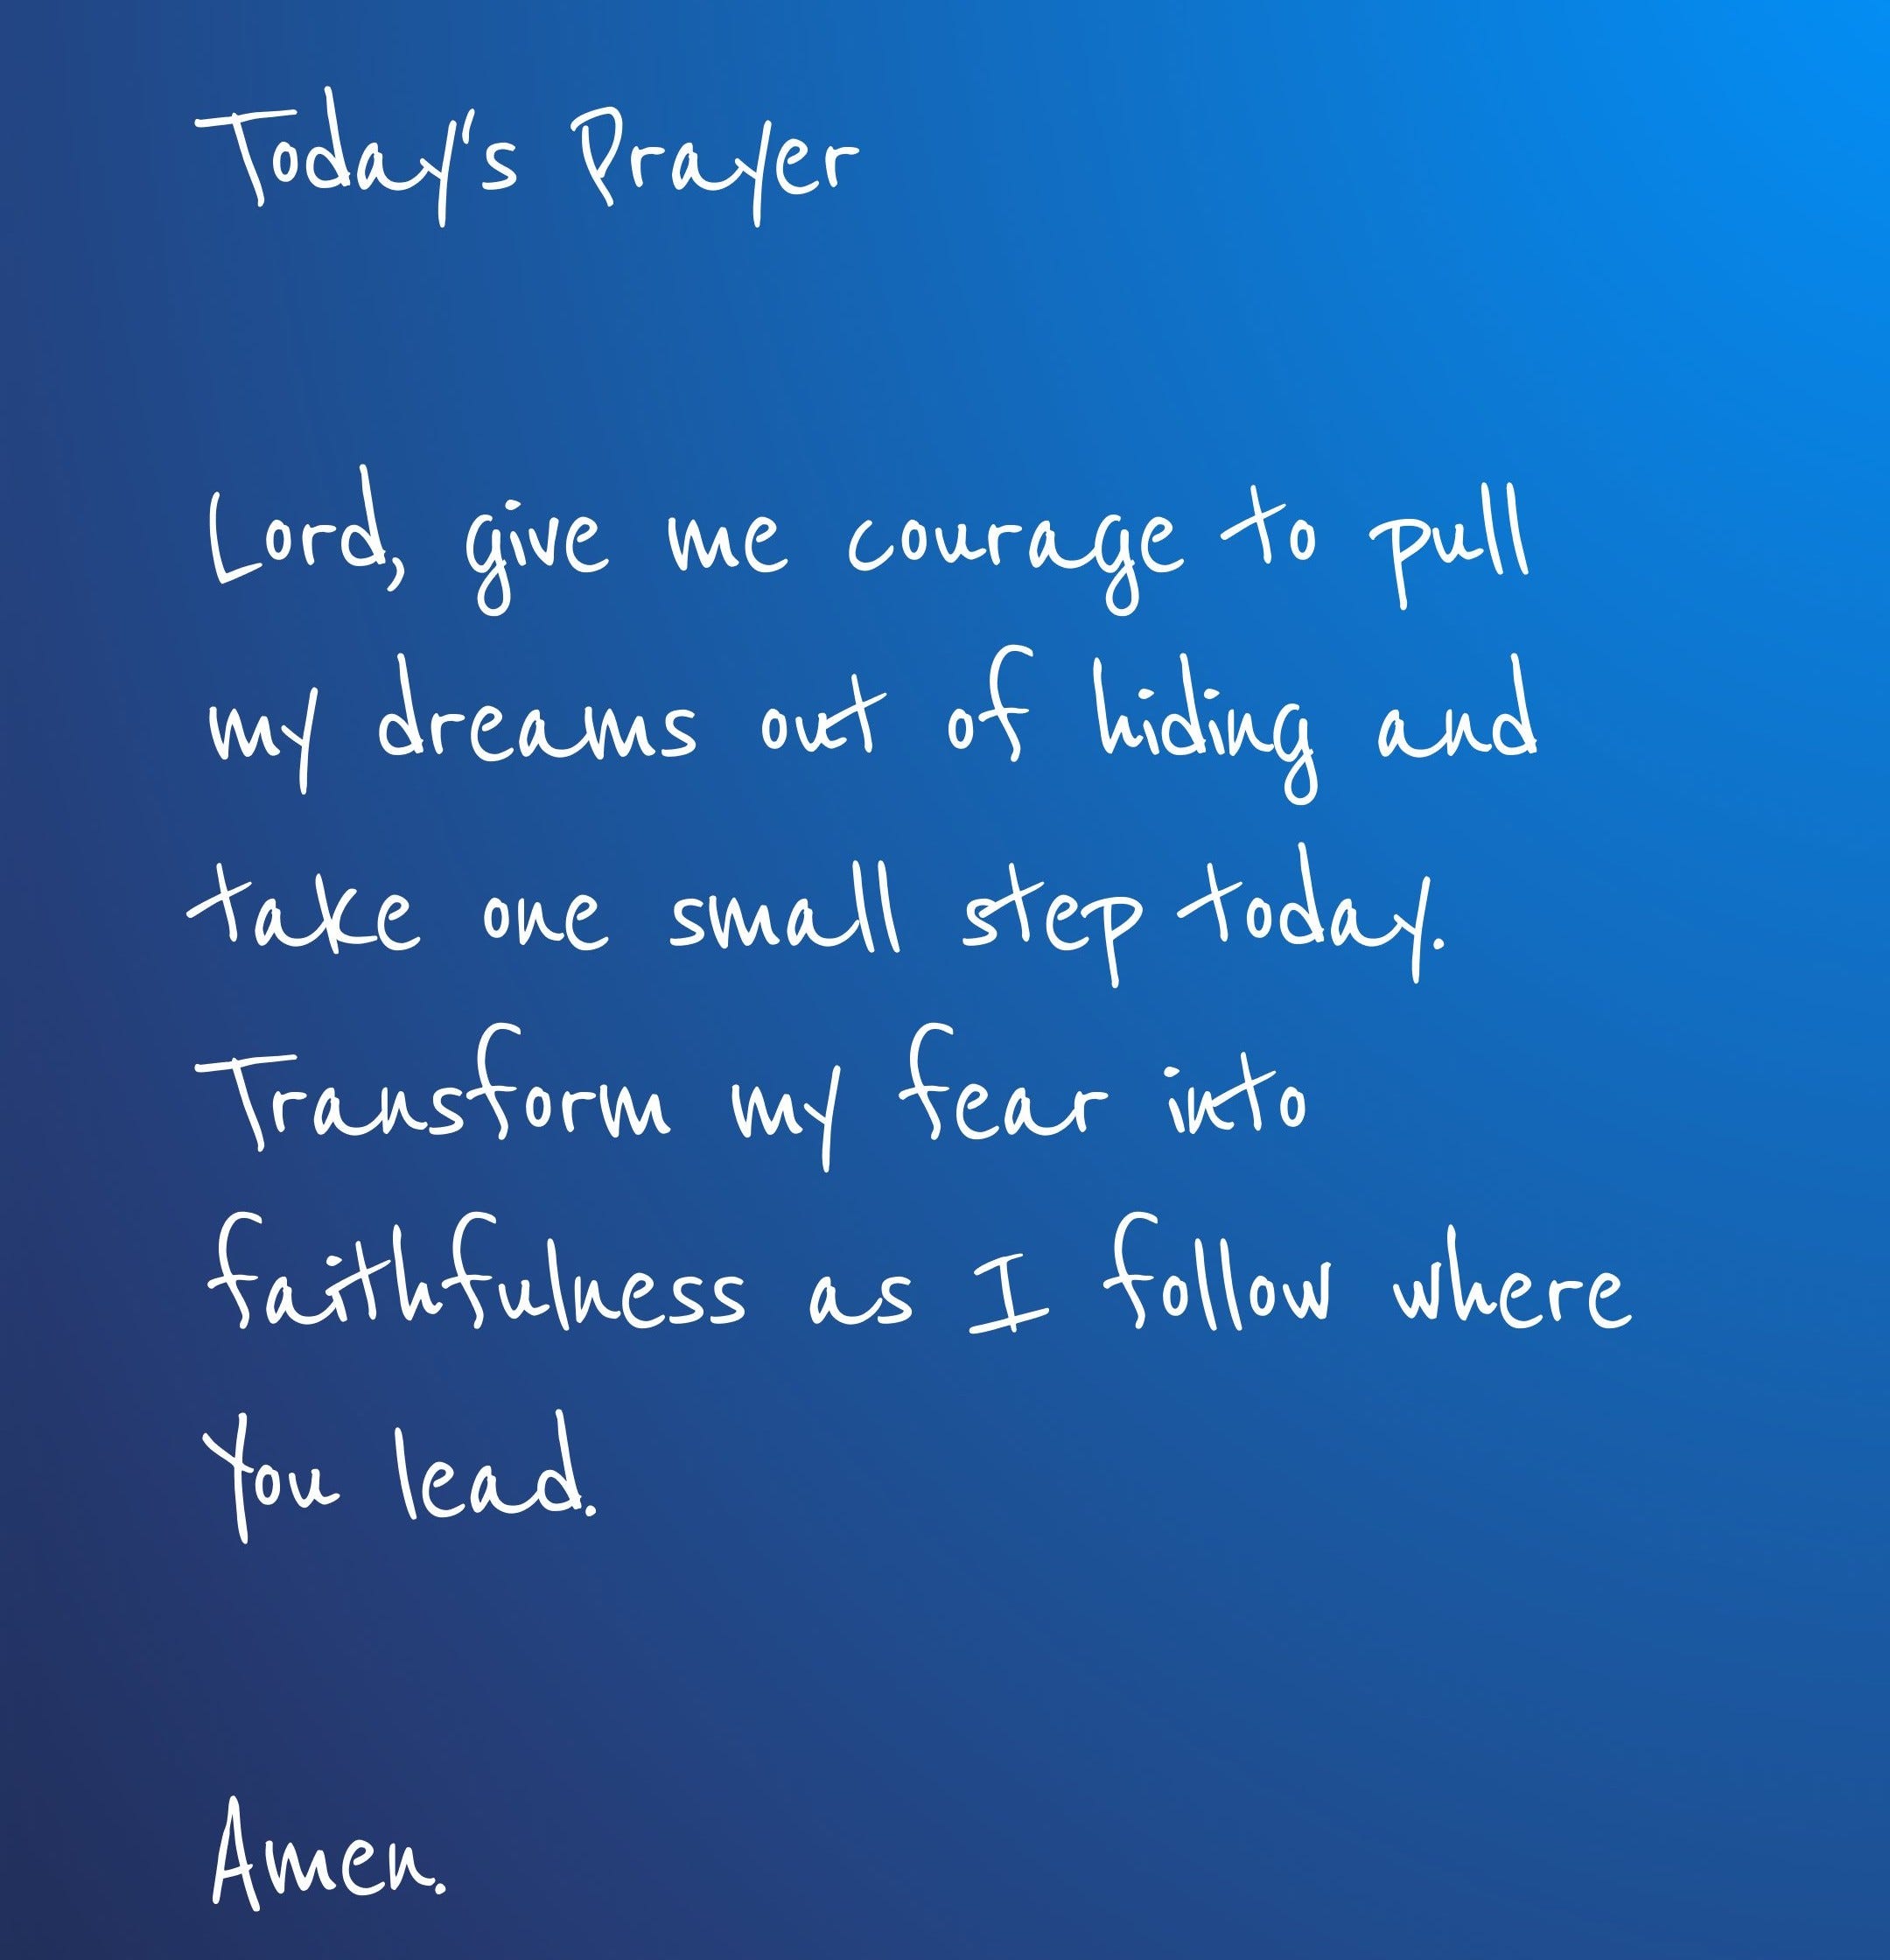 Today's Prayer
Lord, give me courage to pull
my dreams out of hiding and
take one small step today.
Transform my fear into
faithfulness as I follow where
You lead.
Amen.